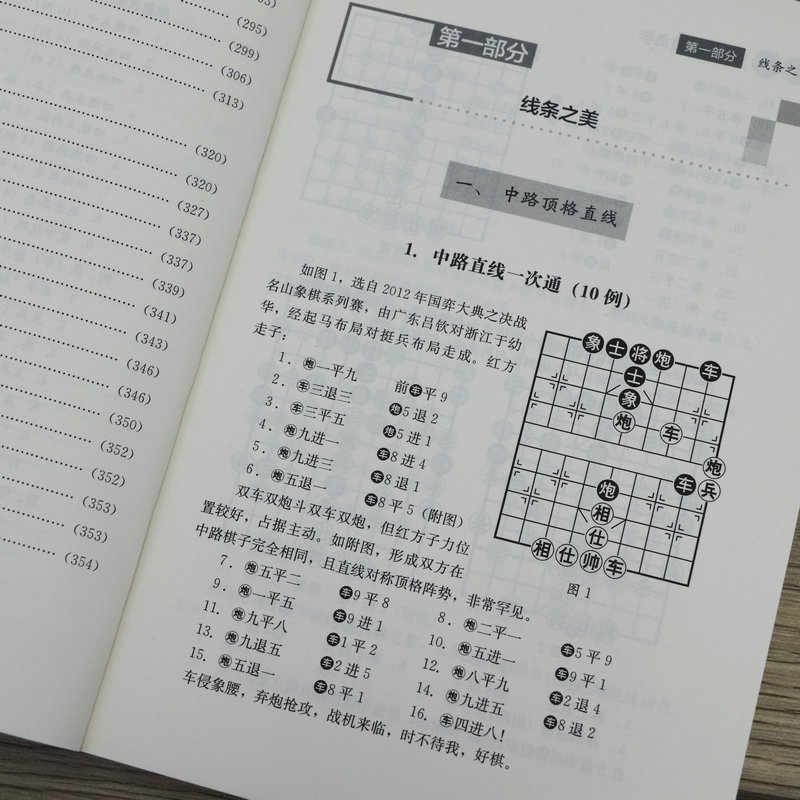 (295)
(299)
(306)
(313)
(320)
(320)
(327)
(337)
(337)
(339)
(341)
(343)
(346)
(346)
(350)
(352)
(352)
(353)
(353)
(354)
第一部分
第一部分 线条之
线条之美
一、 中路顶格直线
1. 中路直线一次通(10 例)
如图 1，选自 2012 年国弈大典之决战
名山象棋系列赛，由广东吕钦对浙江于幼
华，经起马布局对挺兵布局走成。红方
走子：
1. 炮一平九 前车平 9
2. 车三退三 炮5 退 2
3. 车三平五 炮5 进 1
4. 炮九进一 车8 进 4
5. 炮九进三 车8 退 1
6. 炮五退一 车8 平 5 (附图)
双车双炮斗双车双炮，但红方子力位
置较好，占据主动。如附图，形成双方在
中路棋子完全相同，且直线对称顶格阵势，非常罕见。
7. 炮五平二 车9 平 8 8. 炮二平一 车5 平 9
9. 炮一平五 车9 进 1 10. 炮五进一 车9 平 1
11. 炮九平八 车1 平 2 12. 炮八平九 车2 退 4
13. 炮九退五 车2 进 5 14. 炮九进五 车8 退 2
15. 炮五退一 车8 平 1 16. 车四进八！
车侵象腰，弃炮抢攻，战机来临，时不待我，好棋。
象 士 将 炮 车
士
象
炮 车
炮
兵
炮 车
相
仕
相 仕 帅 车
图 1